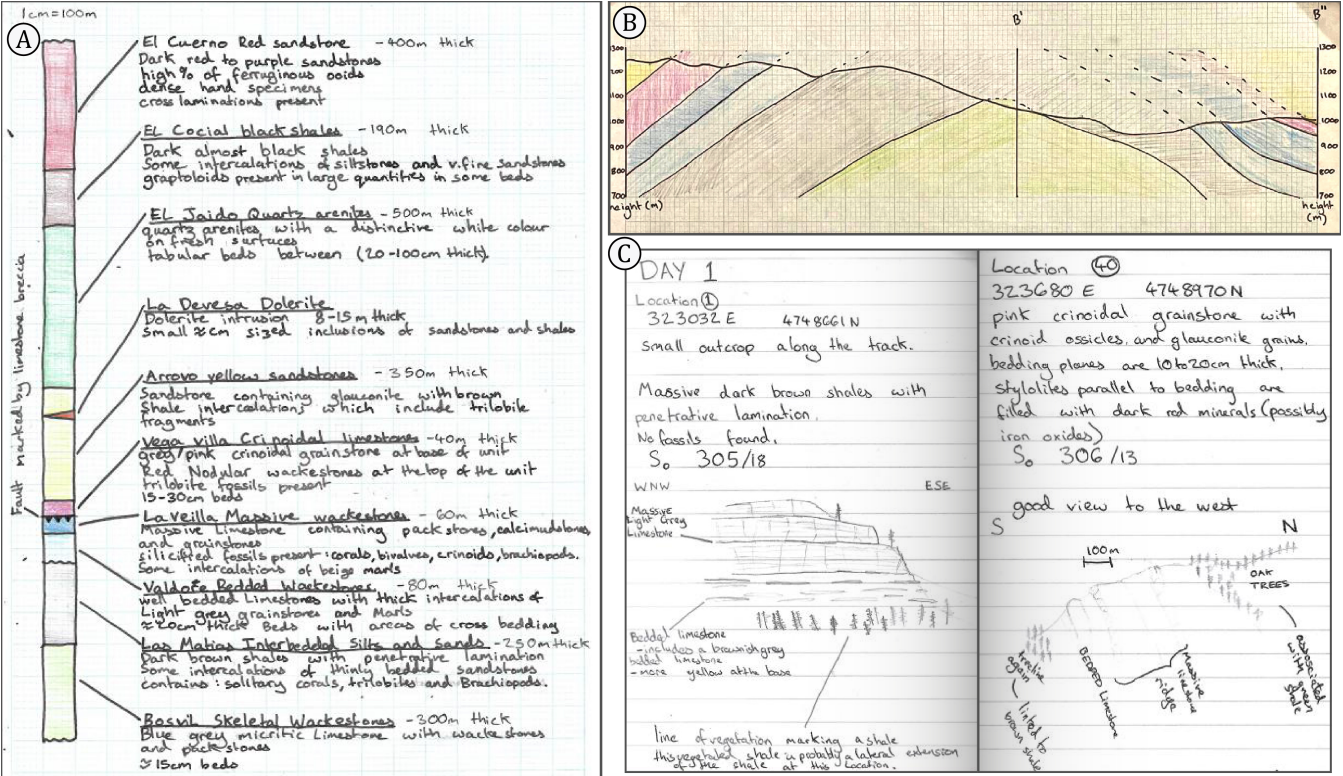 1cm=100m
A
El Cuerno Red sandstone - 400m thick
Dark red to purple sandstones
high % of ferruginous ooids
dense hand specimens
cross laminations present
EL Cocial black shales - 190m thick
Dark almost black shales
Some intercalations of siltstones and v.fine sandstones
graptoloids present in large quantities in some beds
EL Jaido Quartz arenites - 500m thick
quartz arenites, with a distinctive white colour
on fresh surfaces
tabular beds between (20-100cm thick).
La Devesa Dolerite
Dolerite intrusion 8-15m thick
small ≈cm sized inclusions of sandstones and shales
Arroyo yellow sandstones - 350m thick
Sandstone containing glauconite with brown
shale intercalations which include trilobite
fragments
Vega villa Crinoidal limestones - 40m thick
grey/pink crinoidal grainstone at base of unit
Red Nodular wackestones at the top of the unit
trilobite fossils present
15-30cm beds
La Veilla Massive wackestones - 60m thick
Massive Limestone containing packstones, calcimudstones
and grainstones
silicified fossils present: corals, bivalves, crinoids, brachiopods.
Some intercalations of beige marls
Valdoré Bedded Wackestones - 80m thick
well bedded Limestones with thick intercalations of
Light grey grainstones and Marls
≈20cm thick Beds with areas of cross bedding
Las Matias Interbedded Silts and sands - 250m thick
Dark brown shales with penetrative lamination
Some intercalations of thinly bedded sandstones
contains: solitary corals, trilobites and Brachiopods.
Bosvil Skeletal Wackestones - 300m thick
Blue grey micritic Limestone with wackestones
and packstones
≈15cm beds
Fault marked by limestone breccia
B
B'
B"
1300
1100
1000
900
800
700
height (m)
1300
1200
1100
1000
900
800
700
height
(m)
C
DAY 1
Location 1
323032 E 4748661 N
Small outcrop along the track.
Massive dark brown shales with
penetrative lamination.
No fossils found.
S₀ 305/18
WNW ESE
Massive
Light Grey
Limestone
Bedded limestone
- includes a brownish grey
bedded limestone
- more yellow at the base
line of vegetation marking a shale
this vegetated shale is probably a lateral extension
of the shale at this location.
Location 40
323680 E 4748970 N
pink crinoidal grainstone with
crinoid ossicles, and glauconite grains,
bedding planes are 10 to 20cm thick,
stylolites parallel to bedding are
filled with dark red minerals (possibly
iron oxides)
S₀ 306/13
good view to the west
S N
100m
OAK
TREES
associated
with green
shale
Massive
limestone
ridge
BEDDED Limestone
again
linked to
brown shale